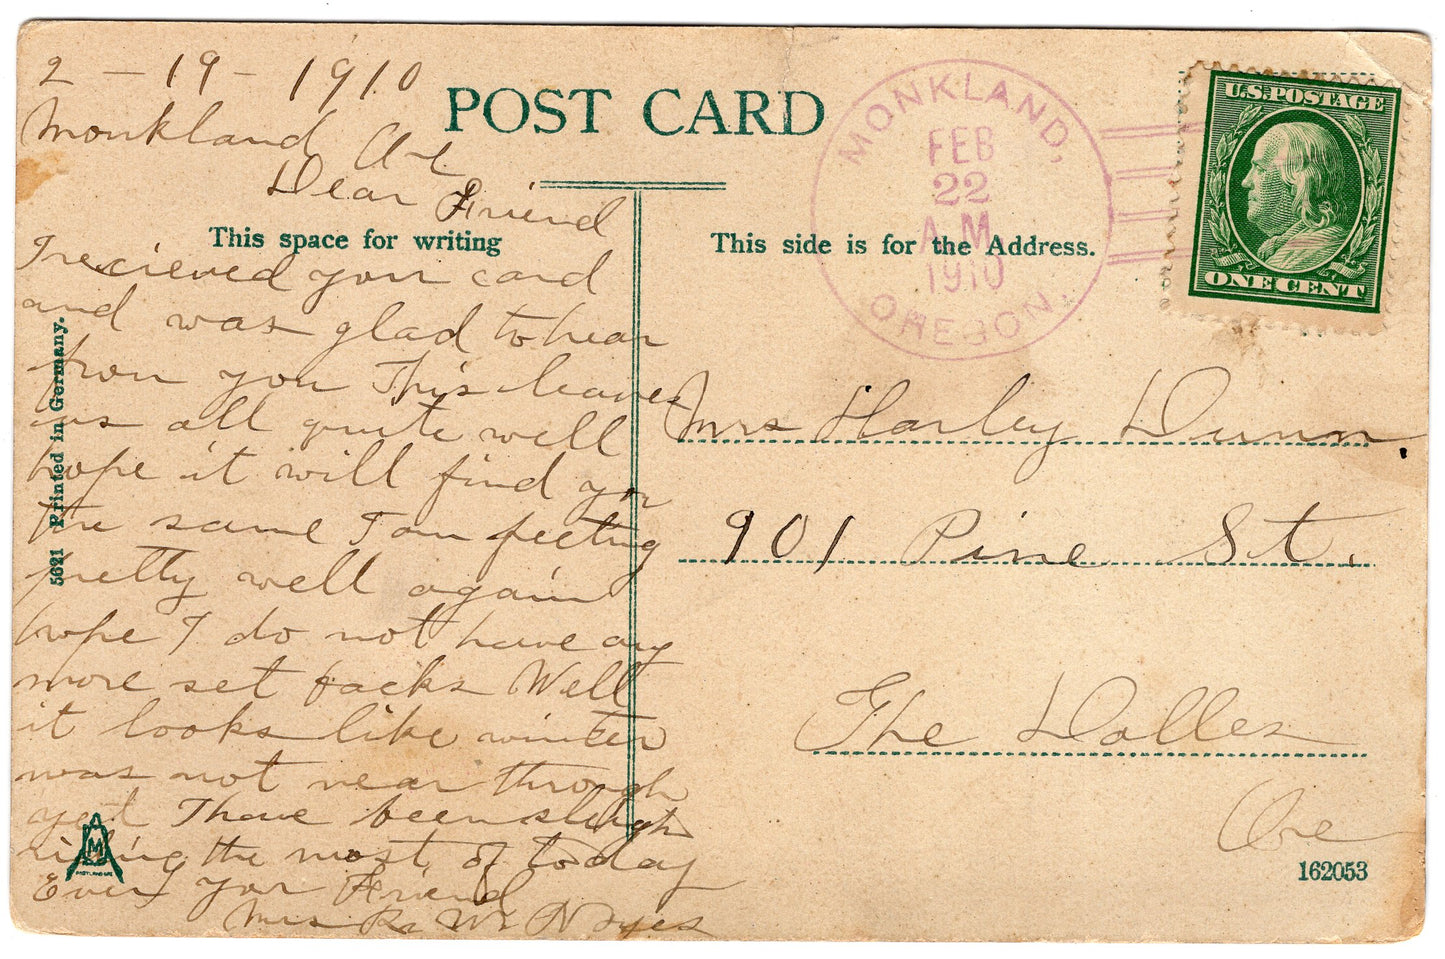 2 - 19 - 1910
Monkland Ore
Dear Friend
POST CARD
This space for writing
I recieved your card
and was glad to hear
from you This leaves
us all quite well
hope it will find you
the same I am feeling
pretty well again
hope I do not have any
more set backs Well
it looks like winter
was not near through
yet I have been sleigh
riding the most of today
Ever your Friend
Mrs R. W. Noyes
5621 Printed in Germany.
M
MONKLAND,
FEB
22
A.M.
1910
OREGON.
U.S. POSTAGE
ONE CENT
This side is for the Address.
Mrs Harley Dunn.
901 Pine St.
The Dalles
Ore
162053